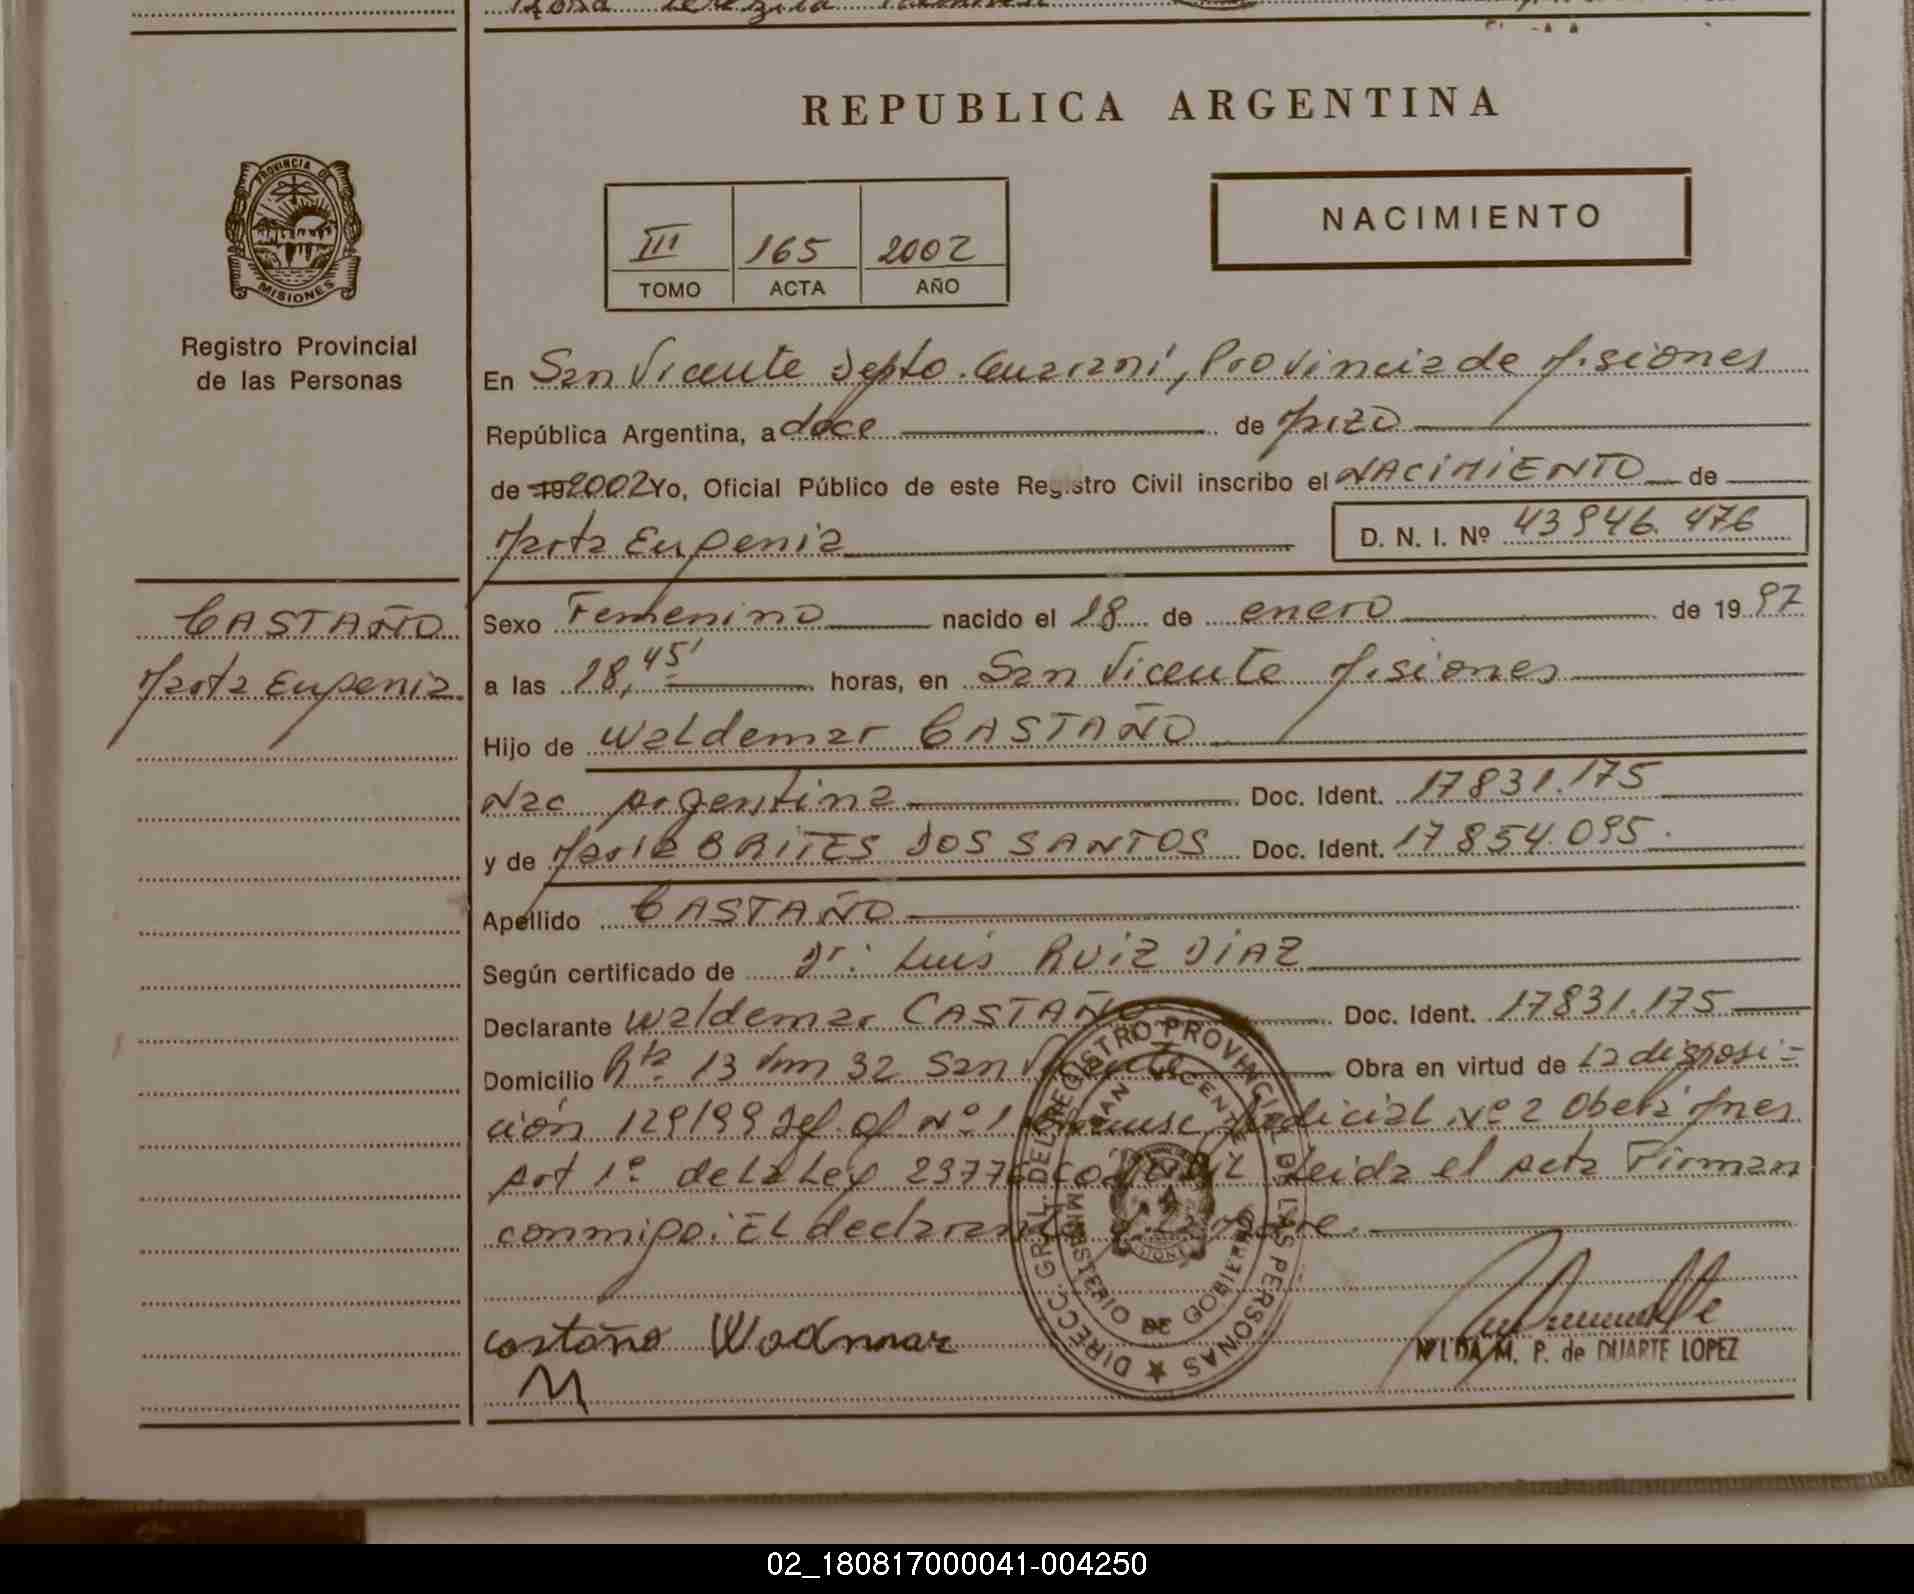 REPUBLICA ARGENTINA
PROVINCIA DE MISIONES
Registro Provincial
de las Personas
III 165 2002
TOMO ACTA AÑO
NACIMIENTO
En San Vicente Depto. Guaraní, Provincia de Misiones
República Argentina, a doce de Marzo
de 19 2002 Yo, Oficial Público de este Registro Civil inscribo el NACIMIENTO de
Marta Eugenia D. N. I. Nº 43946.476
CASTAÑO
Marta Eugenia
Sexo Femenino nacido el 18 de enero de 19 97
a las 18,45' horas, en San Vicente Misiones
Hijo de Waldemar CASTAÑO
Nac Argentina Doc. Ident. 17831.175
y de María BRITES DOS SANTOS Doc. Ident. 17854.095.
Apellido CASTAÑO
Según certificado de Dr. Luis RUIZ DIAZ
Declarante Waldemar CASTAÑO Doc. Ident. 17831.175
Domicilio Rta 13 Km 32 San Vicente Obra en virtud de la disposi=
ción 129/99 Def. of Nº 1 Judicial Nº 2 Oberá Mnes.
Art 1º de la Ley 23776 Leída el acta Firman
conmigo: El declarante y la Madre.
castaño Wadmar
M
NILDA M. P. de DUARTE LOPEZ
DIRECC. GRAL. DEL REGISTRO PROVINCIAL DE LAS PERSONAS
SAN VICENTE
MINISTERIO DE GOBIERNO
02_180817000041-004250